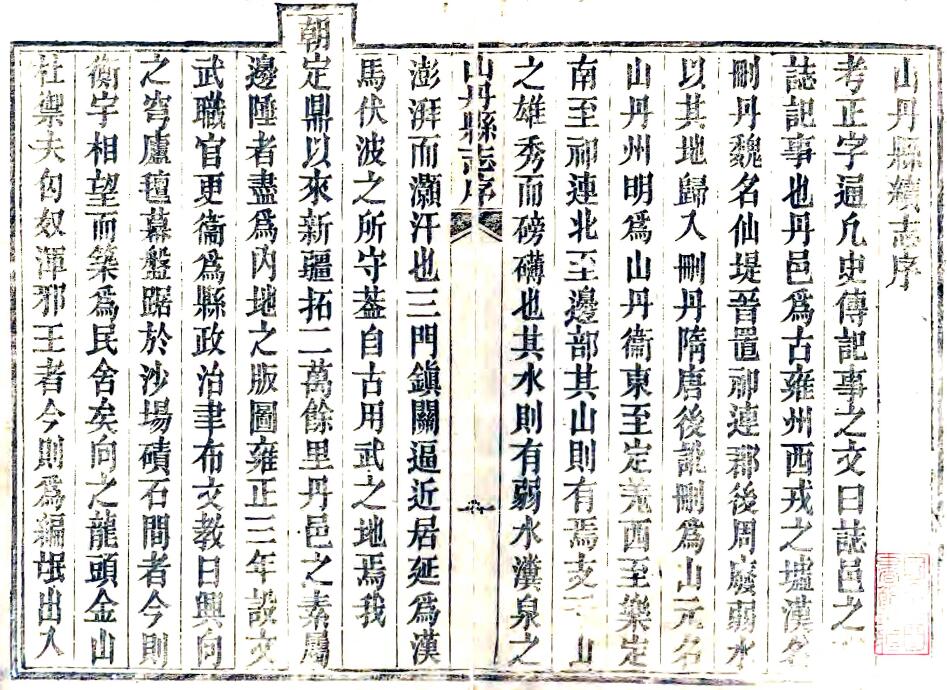 山丹縣續志序
考正字通凡史傳記事之文曰誌邑之
誌記事也丹邑為古雍州西戎之墟漢名
刪丹魏名仙堤晉置祁連郡後周廢弱水
以其地歸入刪丹隋唐後訛刪為山元名
山丹州明為山丹衞東至定羌西至樂定
南至祁連北至邊部其山則有焉支 山
之雄秀而磅礴也其水則有弱水 泉之
山丹縣志序
澎湃而灝汗也三門鎭關逼近居延為漢
馬伏波之所守葢自古用武之地焉我
朝定鼎以來新疆拓二萬餘里丹邑之素屬
邊陲者盡為內地之版圖雍正三年設文
武職官更衞為縣政治聿布文教日興向
之穹廬氊幕盤踞於沙場磧石間者今則
衡宇相望而築為民舍矣向之龍頭金山
杜 夫匈奴渾邪王者今則為編氓出入